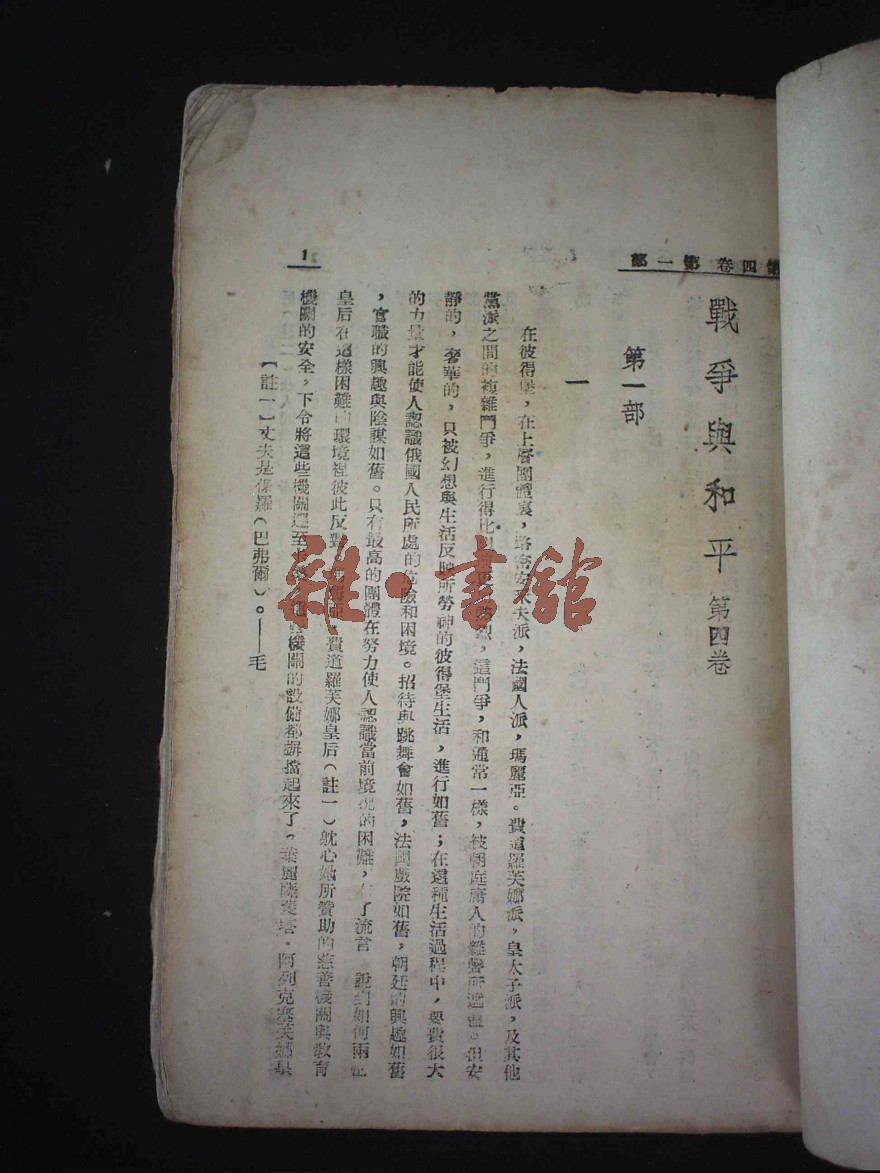 第四卷 第一部
戰爭與和平 第四卷
第一部
一
在彼得堡，在上層團體裏，路密安采夫派，法國人派，瑪麗亞。費道羅芙娜派，皇太子派，及其他
黨派之間的複雜鬥爭，進行得比 ，這鬥爭，和通常一樣，被朝庭 人的雜聲所遮蓋。但安
靜的，奢華的，只被幻想與生活反映所勞神的彼得堡生活，進行如舊；在這種生活過程中，要費很大
的力量才能使人認識俄國人民所處的危險和困境。招待與跳舞會如舊，法國戲院如舊，朝廷的興趣如舊
，官職的興趣與陰謀如舊。只有最高的團體在努力使人認識當前境況的困難， 了流言 說到如何兩位
皇后在這樣困難的環境裡彼此反對 費道羅芙娜皇后（註一）躭心她所贊助的慈善機關與教育
機關的安全，下令將這些機關遷至 機關的設備都綑擋起來了。葉麗 塔．阿列克塞芙娜皇
【註一】丈夫是保羅（巴弗爾）。——毛
1
雜·書館